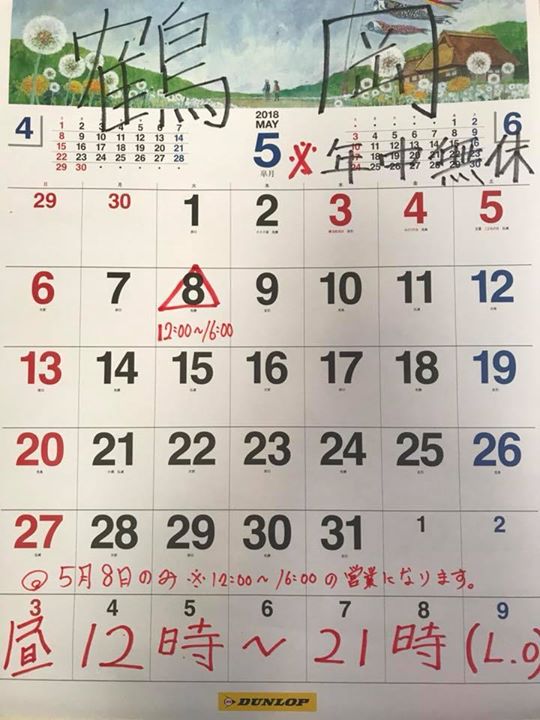 鶴岡
4
2018
MAY
5
皐月
6
1 2 3 4 5 6 7
8 9 10 11 12 13 14
15 16 17 18 19 20 21
22 23 24 25 26 27 28
29 30
※年中無休
日 月 火 水 木 金 土
29 30 1 2 3 4 5
6 7 8 9 10 11 12
12:00〜16:00
13 14 15 16 17 18 19
20 21 22 23 24 25 26
27 28 29 30 31 1 2
◎5月8日のみ※12:00〜16:00の営業になります。
3 4 5 6 7 8 9
昼12時〜21時(L.O)
DUNLOP